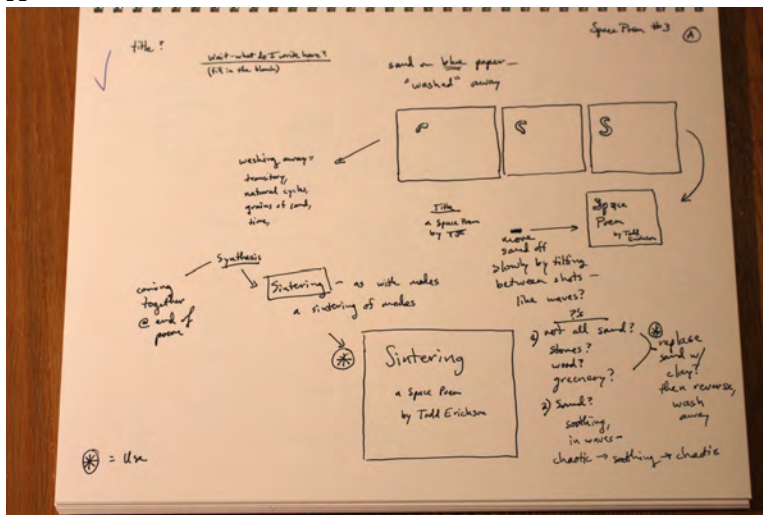 Space Poem #3
A
title?
Wait-what do I write here?
(fill in the blank)
sand on blue paper—
"washed" away
S
washing away=
transitory,
natural cycles,
grains of sand,
time,
Title
a Space Poem
by TJE
Space
Poem
by Todd
Erickson
move
sand off
slowly by tilting
between shots—
like waves?
Synthesis
coming
together
@ end of
poem
Sintering — as with nodes
a sintering of modes
Sintering
a Space Poem
by Todd Erickson
?'s
1) not all sand?
stones?
wood?
greenery?
2) Sound?
soothing,
in waves—
chaotic → soothing → chaotic
replace
sand w/
clay?
then reverse,
wash
away
= Use